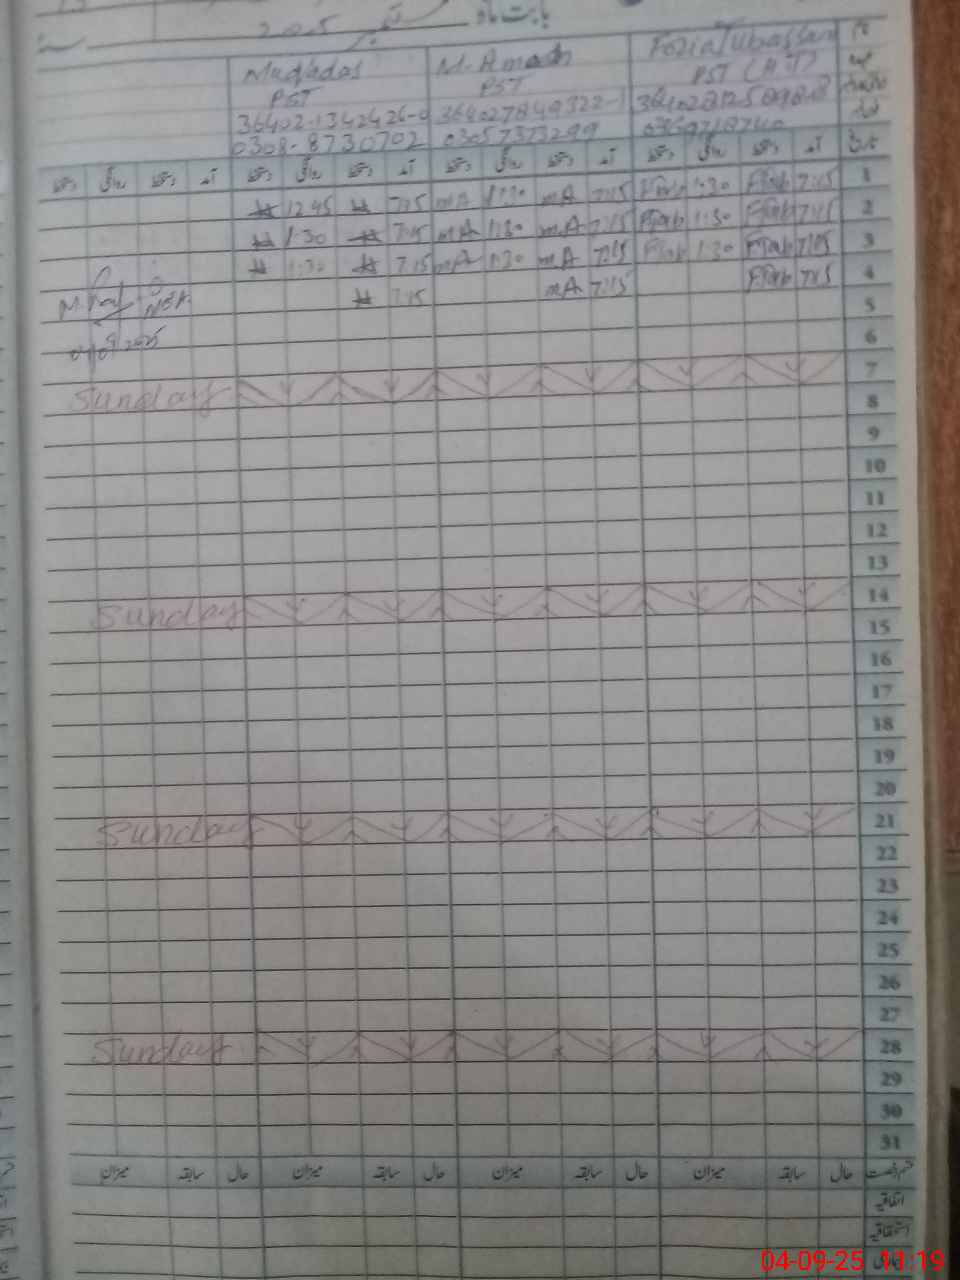 بابت ماہ ستمبر 2025
نام Fozia Tubassam M. Amash Muqadas
عہدہ PST (HT) PST PST
36402-1342426-0
03057373299 0308-8730702
تاریخ آمد دستخط روانگی دستخط آمد دستخط روانگی دستخط آمد دستخط روانگی دستخط آمد دستخط روانگی دستخط
1 7:15 Ftab 1:30 Ftab 7:15 mA 1:30 mA 7:15 12:45
2 7:15 Ftab 1:30 Ftab 7:15 mA 1:30 mA 7:15 1:30
3 7:15 Ftab 1:30 Ftab 7:15 mA 1:30 mA 7:15 1:30
4 7:15 Ftab 7:15 mA 7:15
5
04/09/2025
6
7 Sunday
8
9
10
11
12
13
14 Sunday
15
16
17
18
19
20
21 Sunday
22
23
24
25
26
27
28 Sunday
29
30
31
قسم رخصت حال سابقہ میزان حال سابقہ میزان حال سابقہ میزان حال سابقہ میزان
اتفاقیہ
استحقاقیہ
04-09-25 11:19